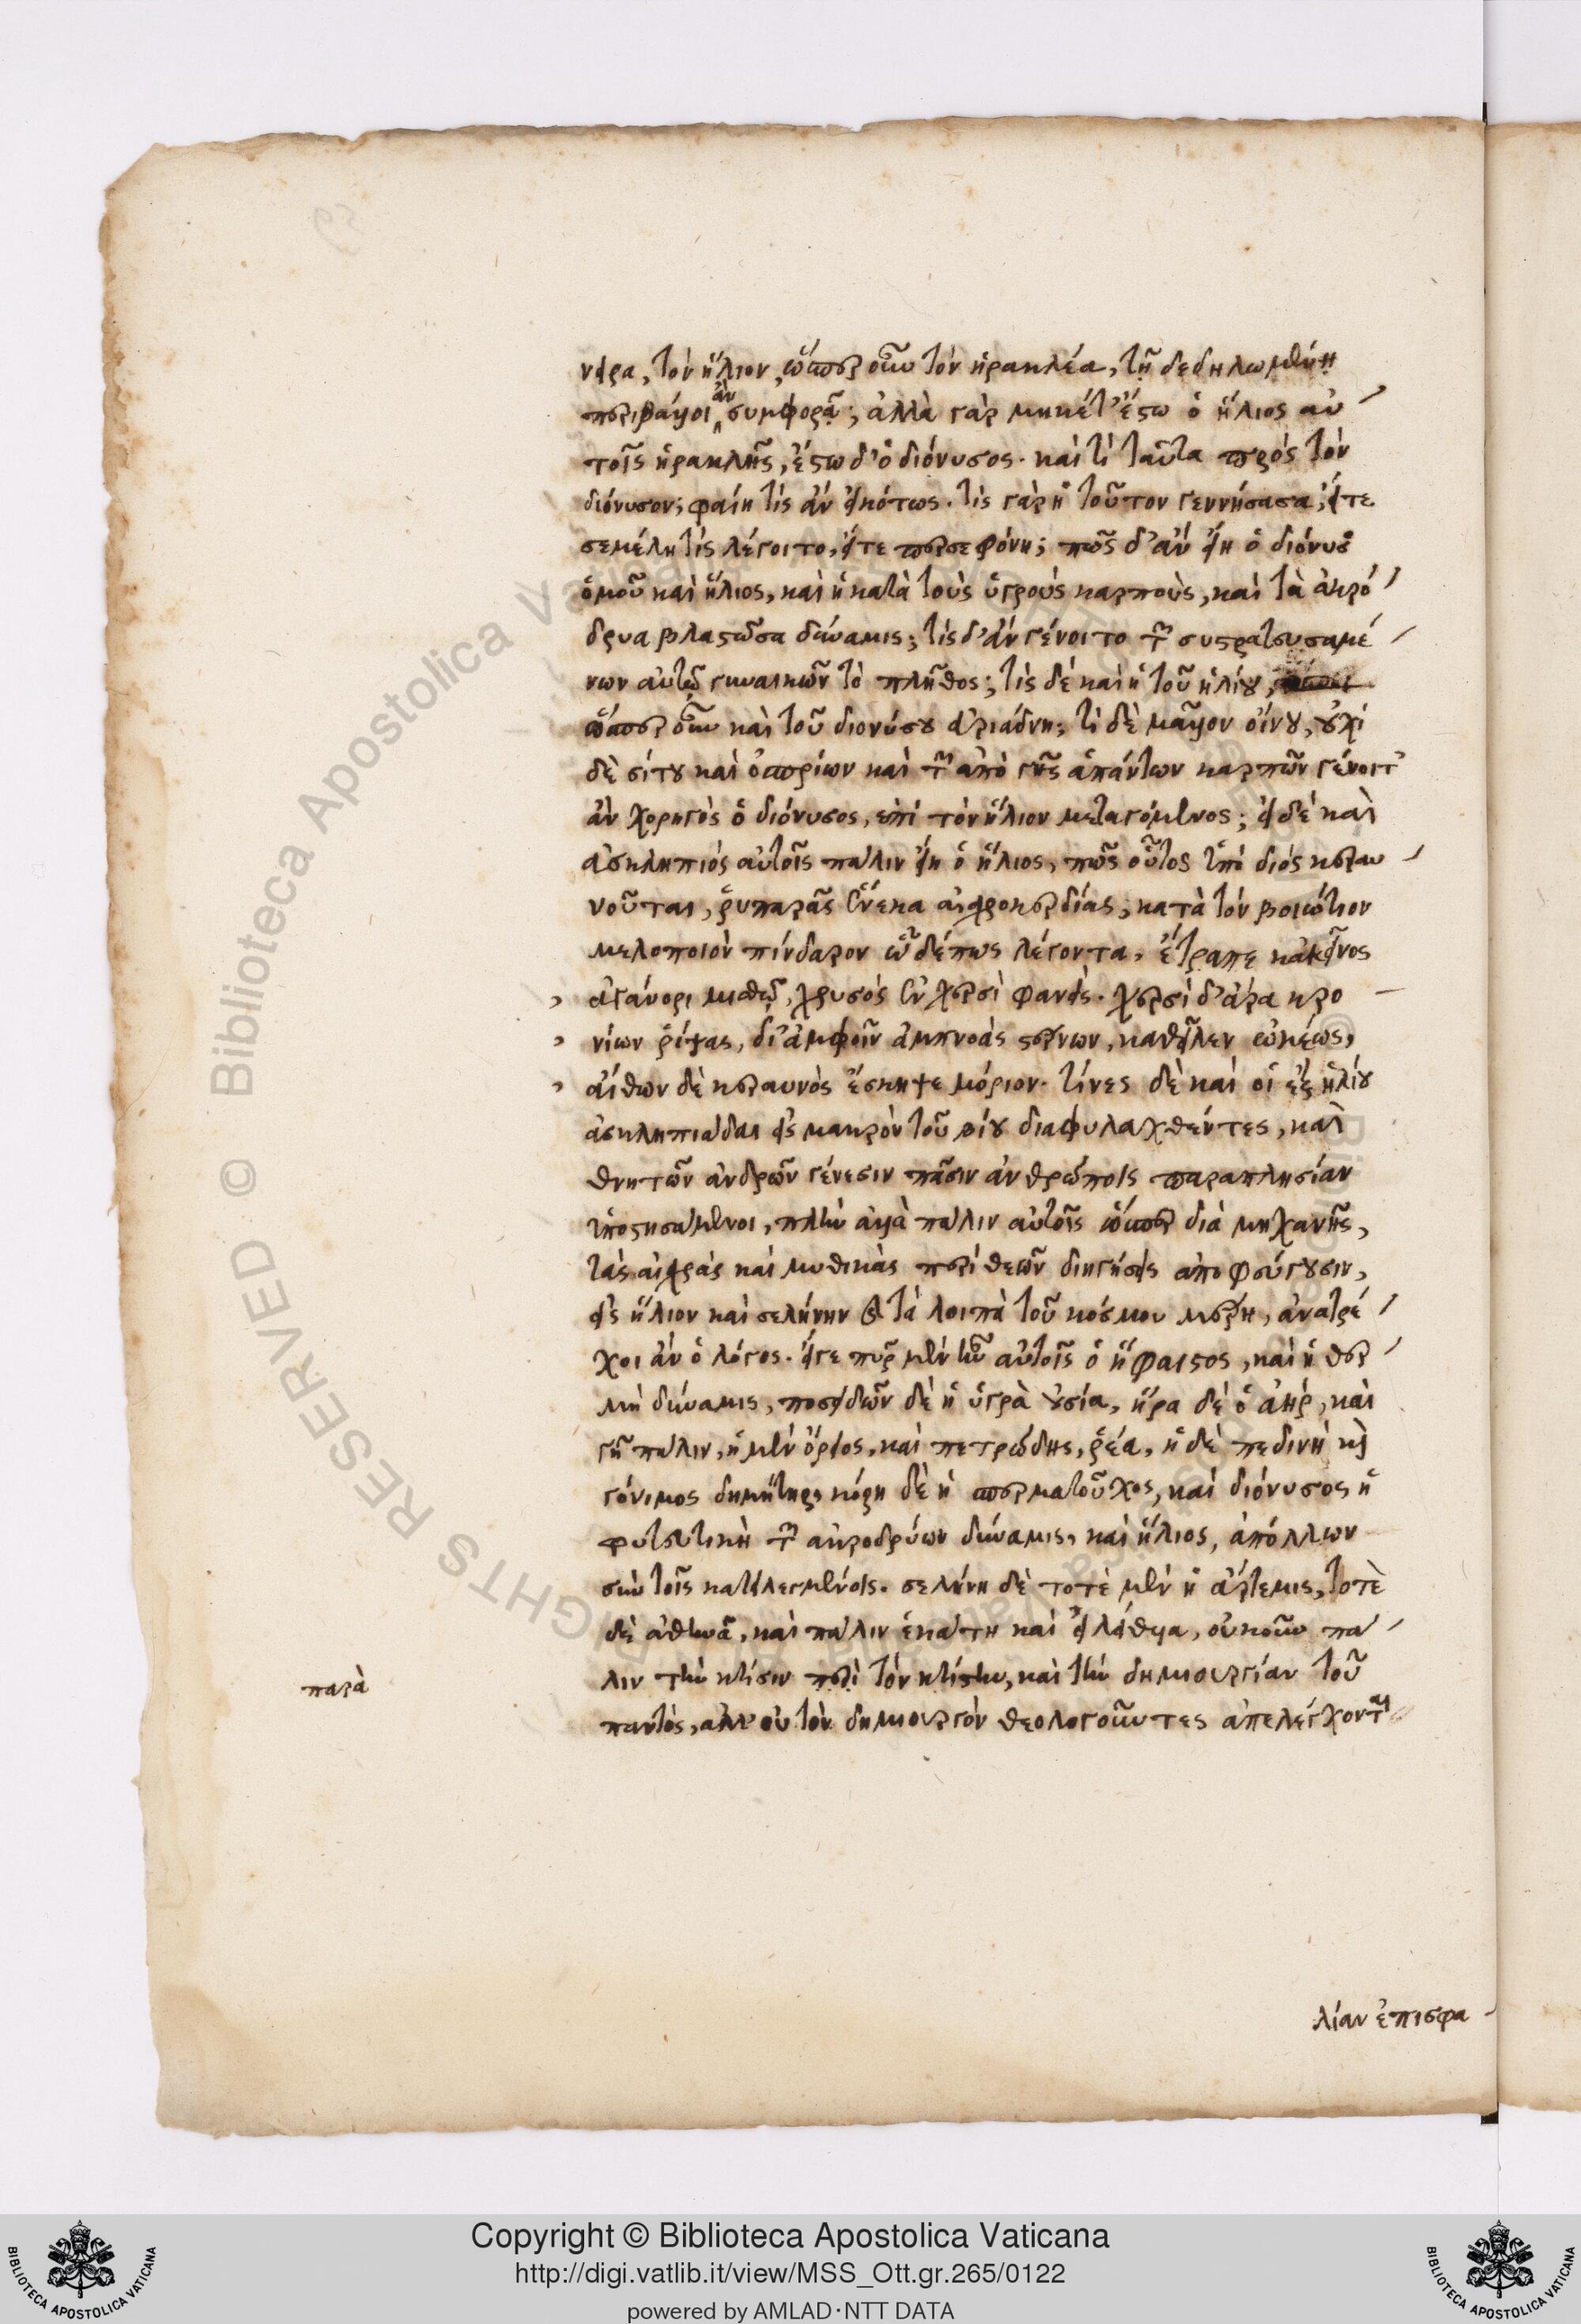 νειρα, τὸν ἥλιον, ὥσπερ οὖν τὸν ἡρακλέα, τῇ δεδηλωμένῃ
περιβάλλοι ἂν συμφορᾷ; ἀλλὰ γὰρ μηκέτ' ἔστω ὁ ἥλιος αὐ
τοῖς ἡρακλῆς, ἔστω δ' ὁ διόνυσος. καὶ τί ταῦτα πρὸς τὸν
διόνυσον; φαίη τίς ἂν εἰκότως. τίς γὰρ ἡ τοῦτον γεννήσασα, εἴτε
σεμέλη τίς λέγοιτο, εἴτε περσεφόνη; πῶς δ' ἂν εἴη ὁ διόνυσος
ὁμοῦ καὶ ἥλιος, καὶ ἡ κατὰ τοὺς ὑγροὺς καρποὺς, καὶ τὰ ἀκρό
δρυα βλαστῶσα δύναμις; τίς δ' ἂν γένοιτο τῶν συστρατευσαμέ
νων αὐτῷ γυναικῶν τὸ πλῆθος; τίς δὲ καὶ ἡ τοῦ ἡλίου,
ὥσπερ οὖν καὶ τοῦ διονύσου ἀριάδνη; τί δὲ μᾶλλον οἴνου, οὐχὶ
δὲ σίτου καὶ ὀσπρίων καὶ τῶν ἀπὸ γῆς ἁπάντων καρπῶν γένοιτ'
ἂν χορηγὸς ὁ διόνυσος, ἐπὶ τὸν ἥλιον μεταγόμενος; εἰ δὲ καὶ
ἀσκληπιὸς αὐτοῖς πάλιν εἴη ὁ ἥλιος, πῶς οὗτος ὑπὸ διὸς κεραυ
νοῦται, ῥυπαρᾶς ἕνεκα αἰσχροκερδίας, κατὰ τὸν βοιώτιον
μελοποιὸν πίνδαρον ὧδέ πως λέγοντα, ἔτραπε κἀκεῖνος
ἀγάνορι μισθῷ, χρυσὸς ἐν χερσὶ φανείς. χερσὶ δ' ἄρα κρο
νίων ῥίψας, δι' ἀμφοῖν ἀμπνοὰς στέρνων, καθεῖλεν ὠκέως,
αἴθων δὲ κεραυνὸς ἔσκηψε μόριον. τίνες δὲ καὶ οἱ ἐξ ἡλίου
ἀσκληπιάδαι εἰς μακρὸν τοῦ βίου διαφυλαχθέντες, καὶ
θνητῶν ἀνδρῶν γένεσιν πᾶσιν ἀνθρώποις παραπλησίαν
ὑποστησάμενοι, πλὴν ἀλλὰ πάλιν αὐτοῖς ὥσπερ διὰ μηχανῆς,
τὰς αἰσχρὰς καὶ μυθικὰς περὶ θεῶν διηγήσεις ἀποφεύγουσιν,
εἰς ἥλιον καὶ σελήνην καὶ τὰ λοιπὰ τοῦ κόσμου μέρη, ἀνατρέ
χοι ἂν ὁ λόγος. εἴγε πῦρ μὲν ἦν αὐτοῖς ὁ ἥφαιστος, καὶ ἡ θερ
μὴ δύναμις, ποσειδῶν δὲ ἡ ὑγρὰ οὐσία, ἥρα δὲ ὁ ἀὴρ, καὶ
γῆ πάλιν, ἡ μὲν ὄρειος, καὶ πετρώδης, ῥέα, ἡ δὲ πεδινὴ καὶ
γόνιμος δημήτηρ, κόρη δὲ ἡ σπερματοῦχος, καὶ διόνυσος ἡ
φυτευτικὴ τῶν ἀκροδρύων δύναμις, καὶ ἥλιος, ἀπόλλων
σὺν τοῖς κατειλεγμένοις. σελήνη δὲ τοτὲ μὲν ἡ ἄρτεμις, τοτὲ
δὲ ἀθηνᾶ, καὶ πάλιν ἑκάτη καὶ εἰλείθυια, οὐκοῦν πά
λιν τὴν κτίσιν περὶ τὸν κτίστην, καὶ τὴν δημιουργίαν τοῦ
παρὰ
παντὸς, ἀλλ' οὐ τὸν δημιουργὸν θεολογοῦντες ἀπελέγχονται
λίαν ἐπισφα